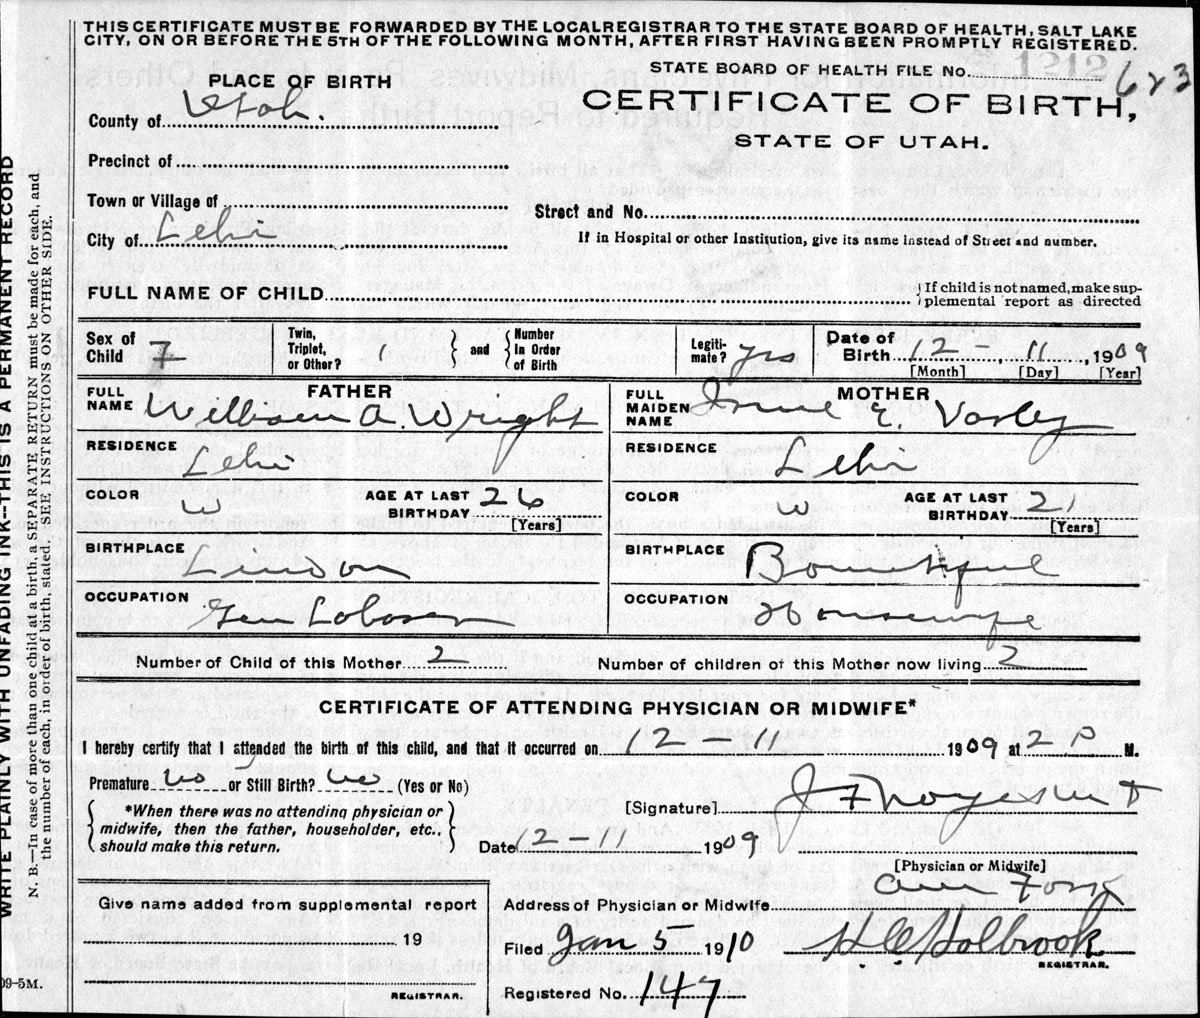 THIS CERTIFICATE MUST BE FORWARDED BY THE LOCAL REGISTRAR TO THE STATE BOARD OF HEALTH, SALT LAKE
CITY, ON OR BEFORE THE 5TH OF THE FOLLOWING MONTH, AFTER FIRST HAVING BEEN PROMPTLY REGISTERED.
STATE BOARD OF HEALTH FILE No. 1212 623
PLACE OF BIRTH
CERTIFICATE OF BIRTH,
County of Utah.
STATE OF UTAH.
Precinct of
Town or Village of
Street and No.
City of Lehi
If in Hospital or other Institution, give its name instead of Street and number.
FULL NAME OF CHILD
{If child is not named, make sup-
plemental report as directed
Sex of Child F
Twin, Triplet, or Other?
and
Number In Order of Birth
Legiti-mate? yes
Date of Birth 12 - 11, 1909
[Month] [Day] [Year]
FATHER
FULL NAME William A. Wright
RESIDENCE Lehi
COLOR W
AGE AT LAST BIRTHDAY 26
[Years]
BIRTHPLACE Lindon
OCCUPATION Gen Laborer
MOTHER
FULL MAIDEN NAME E. Varley
RESIDENCE Lehi
COLOR W
AGE AT LAST BIRTHDAY 21
[Years]
BIRTHPLACE Bountiful
OCCUPATION Housewife
Number of Child of this Mother 2
Number of children of this Mother now living 2
CERTIFICATE OF ATTENDING PHYSICIAN OR MIDWIFE*
I hereby certify that I attended the birth of this child, and that it occurred on 12 - 11 1909 at 2 P M.
Premature no or Still Birth? no (Yes or No)
{*When there was no attending physician or
midwife, then the father, householder, etc.,
should make this return.}
[Signature] J F Noyes M D
Date 12 - 11 1909
[Physician or Midwife]
Address of Physician or Midwife Am Fork
Give name added from supplemental report
19
REGISTRAR.
Filed Jan 5 1910
H C Holbrook
REGISTRAR.
Registered No. 147
WRITE PLAINLY WITH UNFADING INK--THIS IS A PERMANENT RECORD
N. B.—In case of more than one child at a birth, a SEPARATE RETURN must be made for each, and
the number of each, in order of birth, stated. SEE INSTRUCTIONS ON OTHER SIDE.
09-5M.